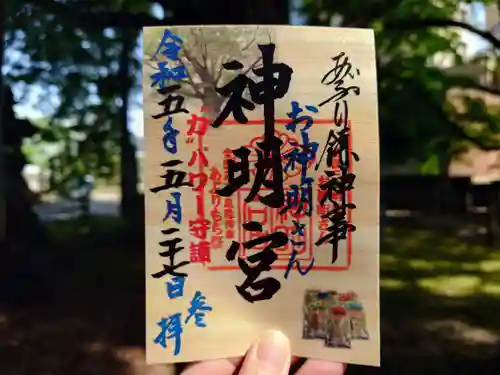 あぶり餅神事
お神明さん
神明宮
"力"パワー守護
令和五年五月二十七日
参拝